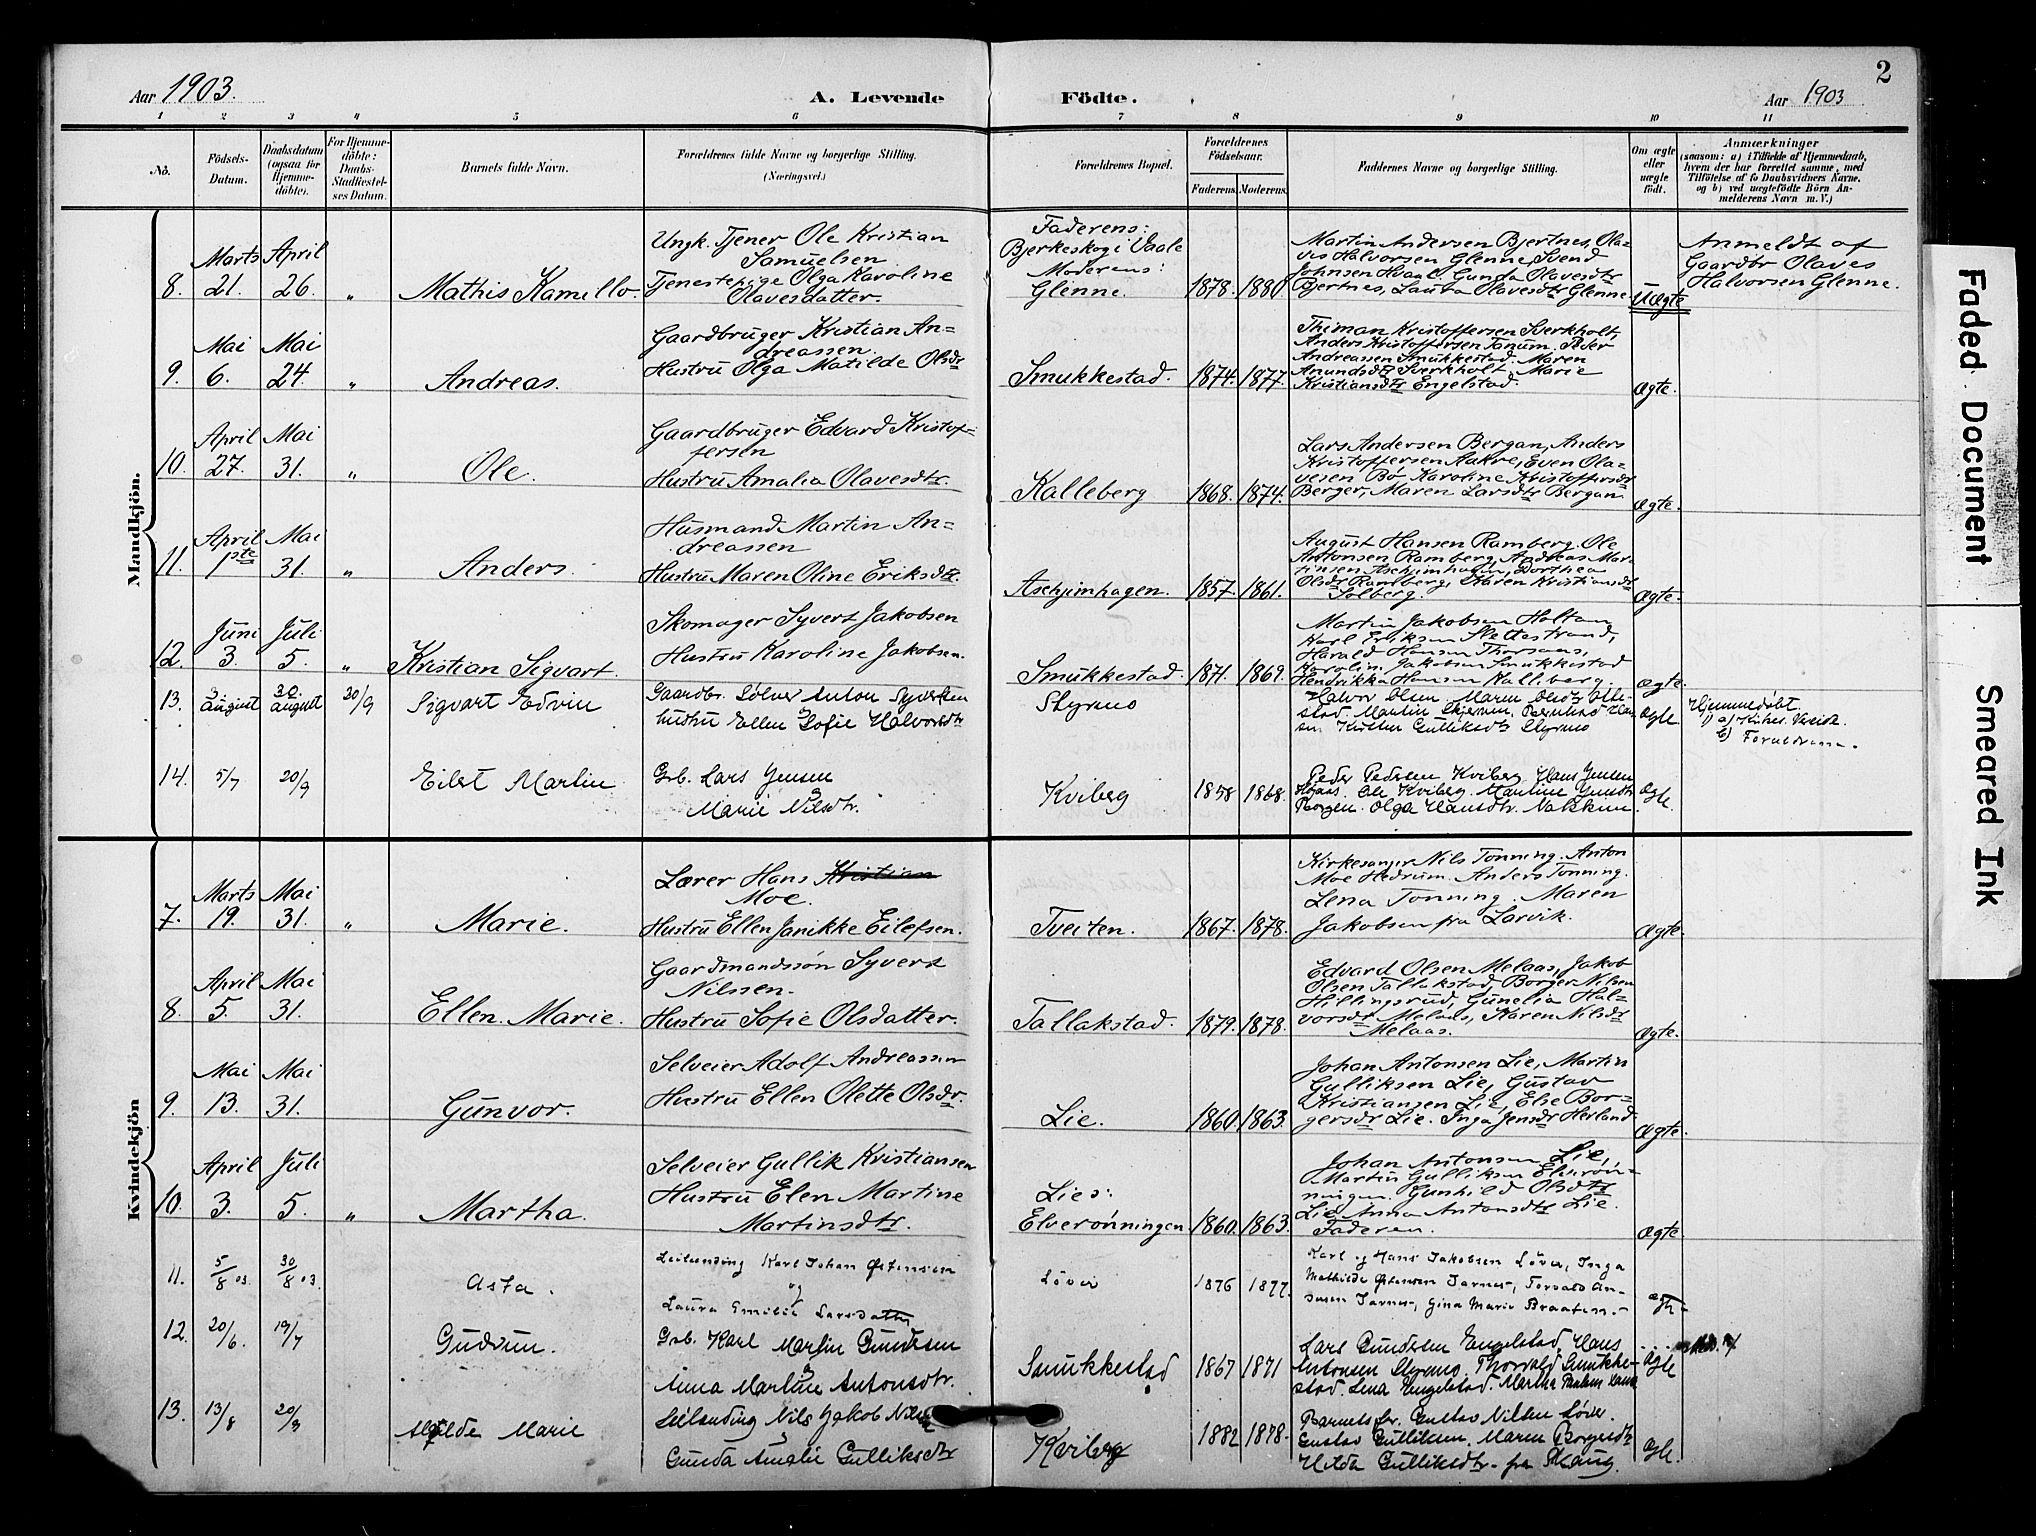 2
Aar 1903.
A. Levende Födte.
Aar 1903
1 2 3 4 5 6 7 8 9 10 11
No.
Födsels-
Datum.
Daabsdatum
(ogsaa for
Hjemme-
döbte).
For Hjemme-
döbte:
Daabs-
Stadfæstel-
ses Datum.
Barnets fulde Navn.
Forældrenes fulde Navne og borgerlige Stilling.
(Næringsvei.)
Forældrenes Bopæl.
Forældrenes
Födselsaar.
Faderens. Moderens.
Faddernes Navne og borgerlige Stilling.
Om ægte
eller
uægte
födt.
Anmærkninger
(saasom: a) i Tilfælde af Hjemmedaab,
hvem der har forrettet samme, med
Tilföielse af to Daabsvidners Navne.
og b) ved uægtefödte Börn An-
melderens Navn m. V.)
Mandkjön.
8.
Marts
21.
April
26.
"
Mathis Kamillo.
Ungk. Tjener Ole Kristian
Samuelsen
Tjenestepige Olga Karoline
Olavesdatter.
Faderens:
Bjerkeskog i Vaale
Moderens:
Glenne.
1878. 1880.
Martin Andersen Bjertnes, Ola-
ves Halvorsen Glenne, Svend
Johnsen Hvaal, Gunda Olavesdtr
Bjertnes, Laura Olavesdtr Glenne
Uægte
Anmeldt af
Gaardbr Olaves
Halvorsen Glenne.
9.
Mai
6.
Mai
24.
"
Andreas.
Gaardbruger Kristian An-
dreassen.
Hustru Olga Matilde Olsdr
Smukkestad.
1874. 1877.
Thiman Kristoffersen Sverkholt,
Anders Kristoffersen Tanum, Peder
Andreassen Smukkestad. Maren
Amundsdtr Sverkholt Marie
Kristiansdtr Engelstad.
Ægte.
10.
April
27.
Mai
31.
"
Ole.
Gaardbruger Edvard Kristof-
fersen
Hustru Amalia Olavesdtr.
Kalleberg
1868. 1874.
Lars Andersen Bergan, Anders
Kristoffersen Aakre, Even Ola-
vesen Bø Karoline Kristoffersdr
Berger, Maren Larsdtr Bergan.
Ægte.
11.
April
1ste
Mai
31.
"
Anders.
Husmand Martin An-
dreassen
Hustru Maren Oline Eriksdtr.
Aschjimhagen.
1857. 1861.
August Hansen Ramberg. Ole
Antonsen Ramberg, Andreas Mar-
tinsen Aschjimhagen, Dorthea
Olsdr Ramberg, Karen Kristiansdr
Solberg.
Ægte.
12.
Juni
3.
Juli
5.
"
Kristian Sigvart.
Skomager Syvert Jakobsen
Hustru Karoline Jakobsen.
Smukkestad.
1871. 1869.
Martin Jakobsen Holtan,
Karl Eriksen Slettestrand,
Harald Hansen Thorsaas,
Karolin. Jakobsen Smukkestad
Hendrikka Hansen Kalleberg.
Ægte.
13.
3
august
30.
august
20/9
Sigvart Edvin
Gaardbr. Sölver Anton Syversen
hustru Ellen Sofie Halvorsdtr
Styrmo
Halvor Olsen. Maren Olsdtr
stad. Martin Skjerven. Bernhard Han
sen Kirsten Gulliksdtr Styrmo
Ægte
Hjemmedøbt
b) Forældrene.
14.
5/7
20/9
Eilert Martin
Grb. Lars Jensen
&
Marie Nilsdtr.
Kviberg
1858 1868.
Peder Pedersen Kviberg. Hans Jensen
Ole Kviberg. Martine Jensdtr
Borgen. Olga Hansdtr.
Ægte.
Kvindekjön
7.
Marts
19.
Mai
31.
"
Marie.
Lærer Hans Kristian
Moe.
Hustru Ellen Janikke Eilefsen.
Tveiten.
1867. 1878.
Kirkesanger Nils Tonning. Anton
Moe Hedrum. Anders Tonning.
Lena Tonning. Maren
Jakobsen fra Larvik.
Ægte.
8.
April
5.
Mai
31.
Ellen Marie.
Gaardmandssøn Syvert
Nilssen.
Hustru Sofie Olsdatter.
Tallakstad.
1879. 1878.
Edvard Olsen Melaas, Jakob
Olsen Tallakstad, Borger Nilsen
Hillingsrud, Gunelia Hal-
vorsdr Melaas, Karen Nilsdr
Melaas.
Ægte.
9.
Mai
13.
Mai
31.
Gunvor.
Selveier Adolf Andreassen
Hustru Ellen Olette Olsdr.
Lie.
1860. 1863.
Johan Antonsen Lie, Martin
Gulliksen Lie, Gustav
Kristiansen Lie, Else Bor-
gersdr Lie. Inga Jensdr Herland.
Ægte.
10.
April
3.
Juli
5.
"
Martha.
Selveier Gullik Kristiansen
Hustru Elen Martine
Martinsdtr.
Lies:
Elverønningen.
1860. 1863.
Johan Antonsen Lie,
Martin Gulliksen Elverøn-
ningen. Gunhild Olsdtr
Lie. Anna Antonsdtr Lie.
Faderen.
Ægte.
11.
5/8 03.
30/8 03.
Asta.
Leilending Karl Johan Østensen
og
Laura Emilie Larsdatter
Löver
1876 1877.
Karl og Hans Jakobsen Löver, Inga
Mathilde Østensen Jarnes, Torvald An-
dersen Jarnes, Gina Marie Braaten.-
ægte
12.
20/6
19/7
Gudrun.
Grb. Karl Martin Gundersen
&
Anna Martine Antonsdtr.
Smukkestad
1867 1871
Lars Gundersen Engelstad, Hans
Antonsen Styrmo, Thorvald Smukke-
stad. Lena Engelstad. Martha
Ægte
13.
13/8
20/9
Alfilde Marie
Leilending Nils Jakob Nilsen
&
Gunda Amalie Gulliksdtr
Kviberg
1882 1878.
Barnets far. Gustav Nilsen Löver.
Gustav Gulliksen. Maren Borgersdtr
Hilda Gulliksdtr. fra Skaug.
Ægte.
Faded Document
Smeared Ink